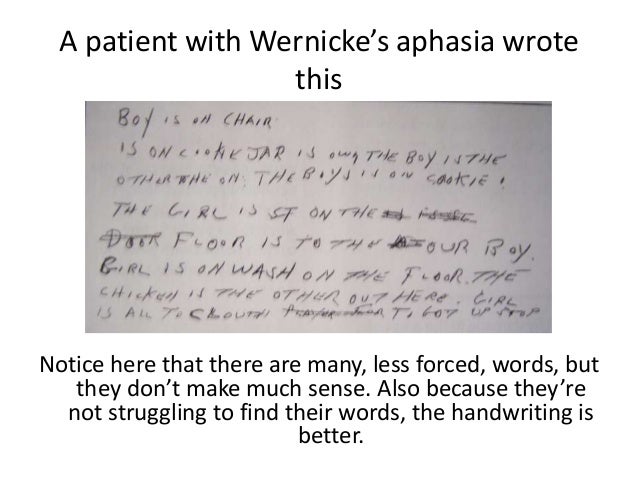 A patient with Wernicke's aphasia wrote
this
BOY IS ON CHAIR.
IS ON COOKIE JAR IS OWN THE BOY IS THE
OTHER THE ON. THE BOYS IS ON COOKIE.
THE GIRL IS ST ON THE
DOOR FLOOR IS TO THE OUR BOY.
GIRL IS ON WASH ON THE FLOOR. THE
CHICKEN IS THE OTHER OUT HERE. GIRL
IS ALL TO TO GOT UP STOP
Notice here that there are many, less forced, words, but
they don't make much sense. Also because they're
not struggling to find their words, the handwriting is
better.